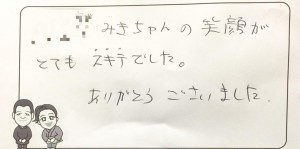 みきちゃんの笑顔が
とても ステキでした。
ありがとうございました.